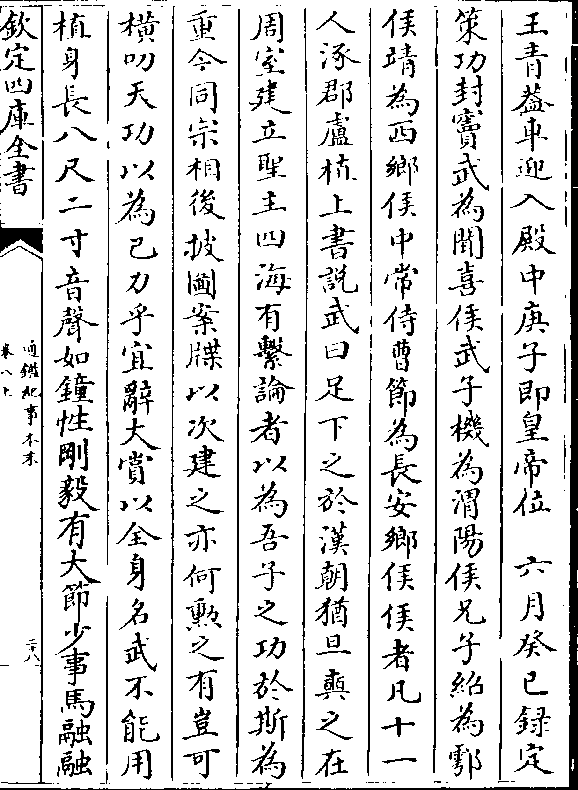 王青葢車迎入殿中庚子即皇帝位　六月癸巳録定
策功封竇武為聞喜侯武子機為渭陽侯兄子紹為鄠
侯靖為西鄉侯中常侍曹節為長安鄉侯侯者凡十一
人涿郡盧植上書説武曰足下之於漢朝猶旦奭之在
周室建立聖主四海有繫論者以為吾子之功於斯為
重今同宗相後披圖案牒以次建之亦何勲之有豈可
横叨天功以為己力乎宜辭大賞以全身名武不能用
植身長八尺二寸音聲如鐘性剛毅有大節少事馬融融
欽定四庫全書
通鑑紀事本末
卷八上
二十八